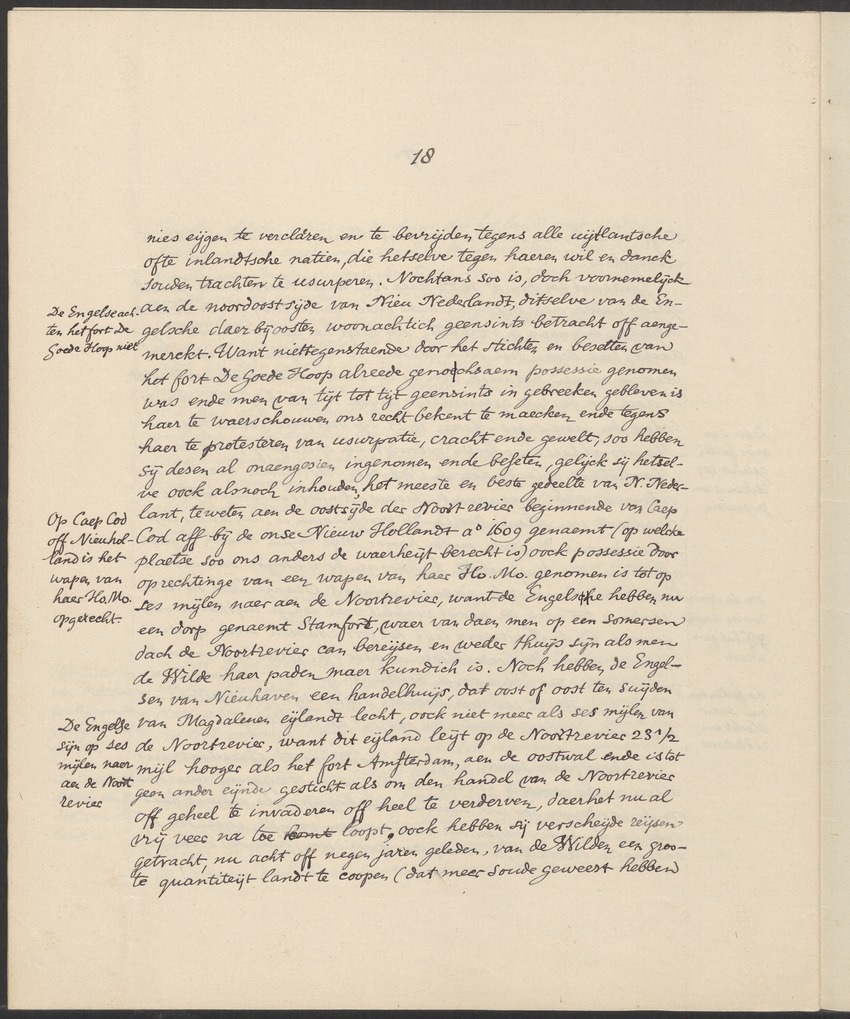 18
nies eijgen te verclaren en te bevrijden tegens alle uijtlantsche
ofte inlandtsche natien, die hetselve tegen haeren wil en danck
souden trachten te usurperen. Nochtans soo is, doch voornemelijck
De Engelse ach-
ten het fort De
Goede Hoop niet
aen de noordoostsijde van Nieu Nederlandt, ditselve van de En-
gelsche daer bij oosten woonachtich geensints betracht off aenge-
merckt. Want niettegenstaende door het stichten en besetten van
het fort De Goede Hoop alreede genoechsaem possessie genomen
was ende men van tijt tot tijt geensints in gebreeken gebleven is
haer te waerschouwen ons recht bekent te maecken ende tegens
haer te protesteren van usurpatie, cracht ende gewelt, soo hebben
sij desen al onaengesien ingenomen ende beseten, gelijck sij hetsel-
ve oock alsnoch inhouden, het meeste en beste gedeelte van N. Neder-
lant, te weten aen de oostsijde der Noort revier beginnende van Caep
Op Caep Cod
off Nieuhol-
land is het
wapen van
haer Ho. Mo.
opgerecht.
Cod aff bij de onse Nieuw Hollandt a° 1609 genaemt (op welcke
plaetse soo ons anders de waerheijt berecht is) oock possessie door
oprechtinge van een wapen van haer Ho. Mo. genomen is tot op
ses mijlen naer aen de Noortrevier, want de Engelsche hebben nu
een dorp genaemt Stamfort, waer van daen men op een somersen
dach de Noortrevier can bereijsen en weder thuijs sijn als men
de Wilde haer paden maer kundich is. Noch hebben de Engel-
sen van Nieuhaven een handelhuijs, dat oost of oost ten suijden
De Engelse
sijn op ses
mijlen naer
aen de Noort
revier
van Magdalenen eijlandt lecht, oock niet meer als ses mijlen van
de Noortrevier, want dit eijland leijt op de Noortrevier 23 1/2
mijl hooger als het fort Amsterdam, aen de oostwal ende is tot
geen ander eijnde gesticht als om den handel van de Noortrevier
off geheel te invaderen off heel te verderven, daer het nu al
vrij veer na toe loopt, oock hebben sij verscheijde reijsen
getracht, nu acht off negen jaren geleden, van de Wilden een groo-
te quantiteijt landt te coopen (dat meer soude geweest hebben